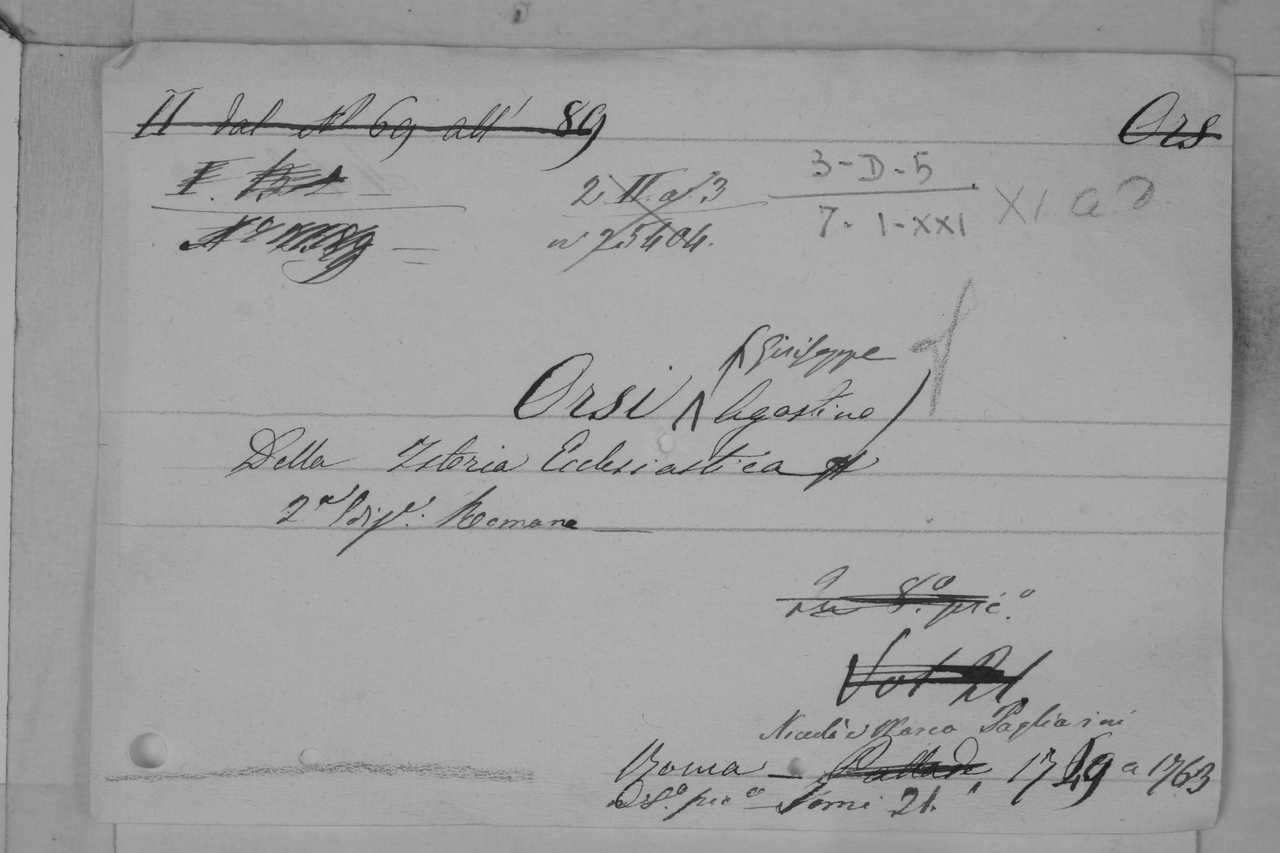 II dal N° 69 all' 89 Ors
3-D-5
2. II. a. 3 XI a
7-1-XXI
n° 25404.
Giuseppe
Orsi (Agostino)
Della Istoria Ecclesiastica
2ª Ediz.e Romana
In 8.° pic.°
Vol 21
Nicolò e Marco Pagliarini
Roma — 1749 a 1763
in 8.° pic.° Tomi 21.